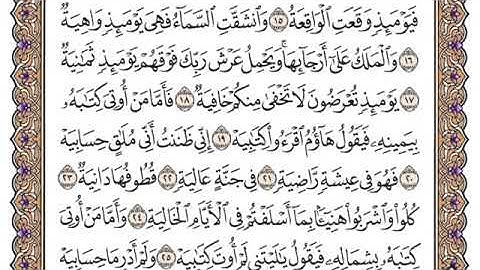 فَيَوْمَئِذٖ وَقَعَتِ ٱلْوَاقِعَةُ ١٥ وَٱنشَقَّتِ ٱلسَّمَآءُ فَهِىَ يَوْمَئِذٖ وَاهِيَةٞ
١٦ وَٱلْمَلَكُ عَلَىٰٓ أَرْجَآئِهَاۚ وَيَحْمِلُ عَرْشَ رَبِّكَ فَوْقَهُمْ يَوْمَئِذٖ ثَمَٰنِيَةٞ
١٧ يَوْمَئِذٖ تُعْرَضُونَ لَا تَخْفَىٰ مِنكُمْ خَافِيَةٞ ١٨ فَأَمَّا مَنْ أُوتِىَ كِتَٰبَهُۥ
بِيَمِينِهِۦ فَيَقُولُ هَآؤُمُ ٱقْرَءُواْ كِتَٰبِيَهْ ١٩ إِنِّى ظَنَنتُ أَنِّى مُلَٰقٍ حِسَابِيَهْ
٢٠ فَهُوَ فِى عِيشَةٖ رَّاضِيَةٖ ٢١ فِى جَنَّةٍ عَالِيَةٖ ٢٢ قُطُوفُهَا دَانِيَةٞ ٢٣
كُلُواْ وَٱشْرَبُواْ هَنِيٓـَٔۢا بِمَآ أَسْلَفْتُمْ فِى ٱلْأَيَّامِ ٱلْخَالِيَةِ ٢٤ وَأَمَّا مَنْ أُوتِىَ
كِتَٰبَهُۥ بِشِمَالِهِۦ فَيَقُولُ يَٰلَيْتَنِى لَمْ أُوتَ كِتَٰبِيَهْ ٢٥ وَلَمْ أَدْرِ مَا حِسَابِيَهْ